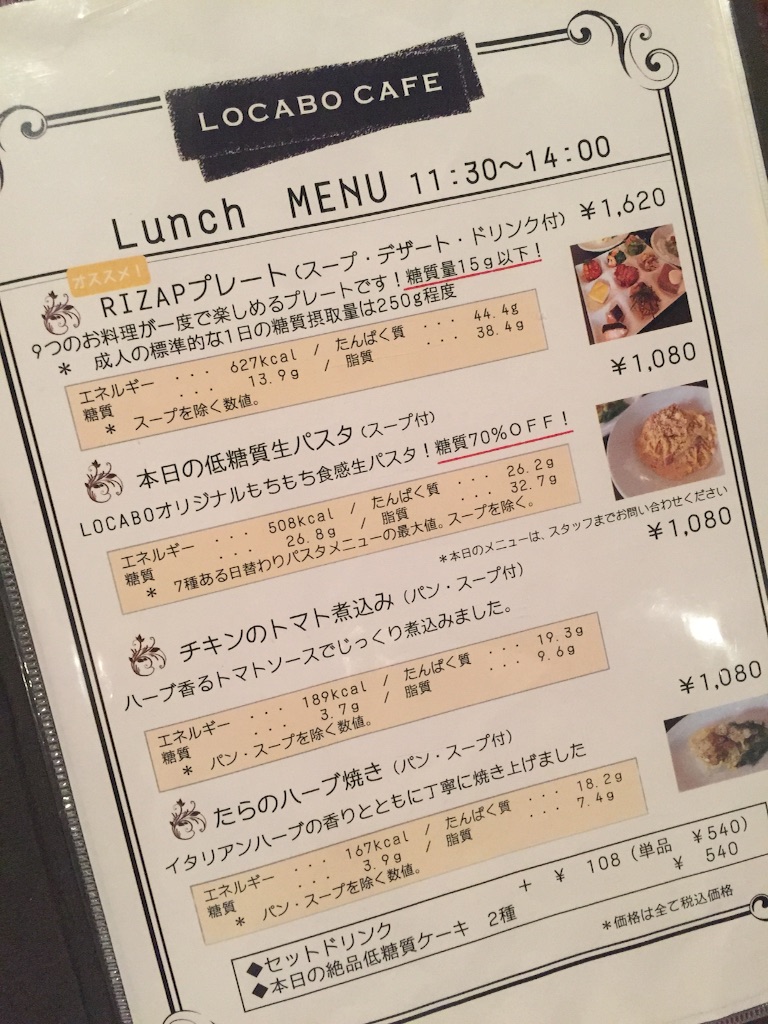 LOCABO CAFE
Lunch MENU 11:30〜14:00
オススメ！
RIZAPプレート（スープ・デザート・ドリンク付） ¥1,620
9つのお料理が一度で楽しめるプレートです！糖質量15g以下！
＊ 成人の標準的な1日の糖質摂取量は250g程度
エネルギー ・・・ 627kcal / たんぱく質 ・・・ 44.4g
糖質 ・・・ 13.9g / 脂質 ・・・ 38.4g
＊ スープを除く数値。
本日の低糖質生パスタ（スープ付） ¥1,080
LOCABOオリジナルもちもち食感生パスタ！糖質70％OFF！
エネルギー ・・・ 508kcal / たんぱく質 ・・・ 26.2g
糖質 ・・・ 26.8g / 脂質 ・・・ 32.7g
＊ 7種ある日替わりパスタメニューの最大値。スープを除く。
＊本日のメニューは、スタッフまでお問い合わせください
チキンのトマト煮込み（パン・スープ付） ¥1,080
ハーブ香るトマトソースでじっくり煮込みました。
エネルギー ・・・ 189kcal / たんぱく質 ・・・ 19.3g
糖質 ・・・ 3.7g / 脂質 ・・・ 9.6g
＊ パン・スープを除く数値。
たらのハーブ焼き（パン・スープ付） ¥1,080
イタリアンハーブの香りとともに丁寧に焼き上げました
エネルギー ・・・ 167kcal / たんぱく質 ・・・ 18.2g
糖質 ・・・ 3.9g / 脂質 ・・・ 7.4g
＊ パン・スープを除く数値。
◆セットドリンク ＋ ¥ 108（単品 ¥540）
◆本日の絶品低糖質ケーキ 2種 ¥ 540
＊価格は全て税込価格